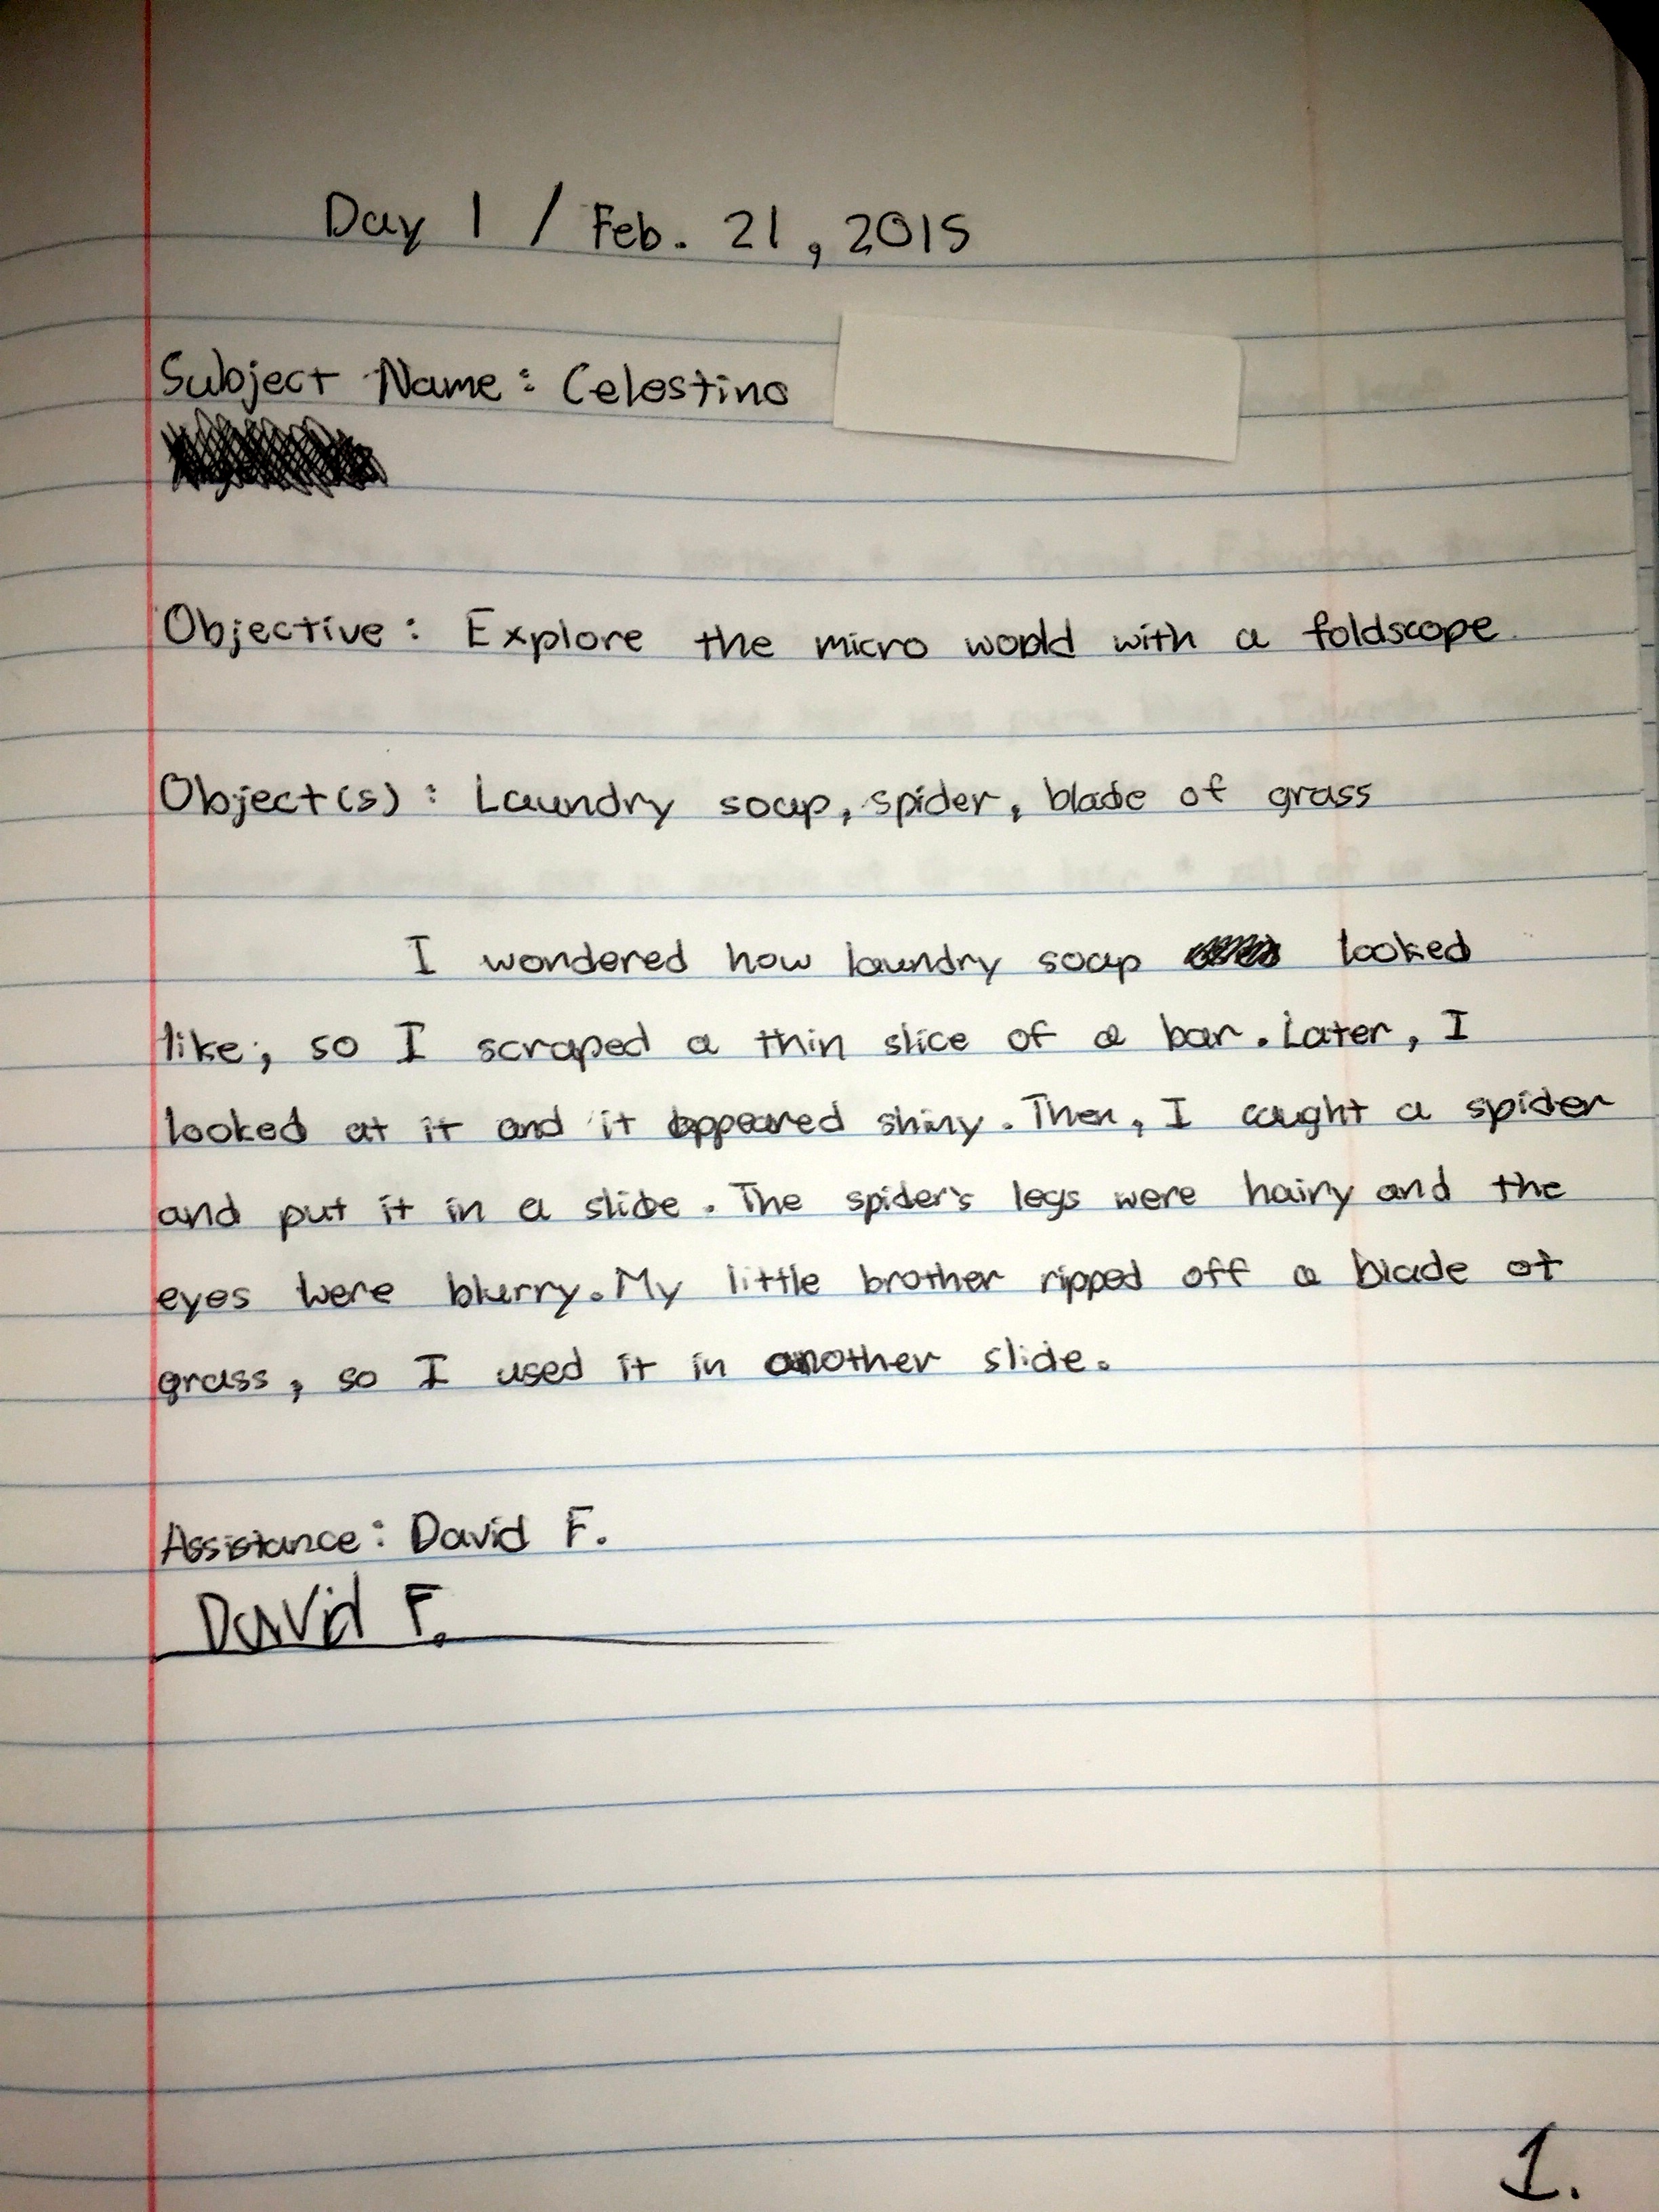 Day 1 / Feb. 21, 2015
Subject Name: Celestino
Objective: Explore the micro world with a foldscope
Object(s): Laundry soap, spider, blade of grass
I wondered how laundry soap looked
like, so I scraped a thin slice of a bar. Later, I
looked at it and it appeared shiny. Then, I caught a spider
and put it in a slide. The spider's legs were hairy and the
eyes were blurry. My little brother ripped off a blade of
grass, so I used it in another slide.
Assistance: David F.
David F.
1.